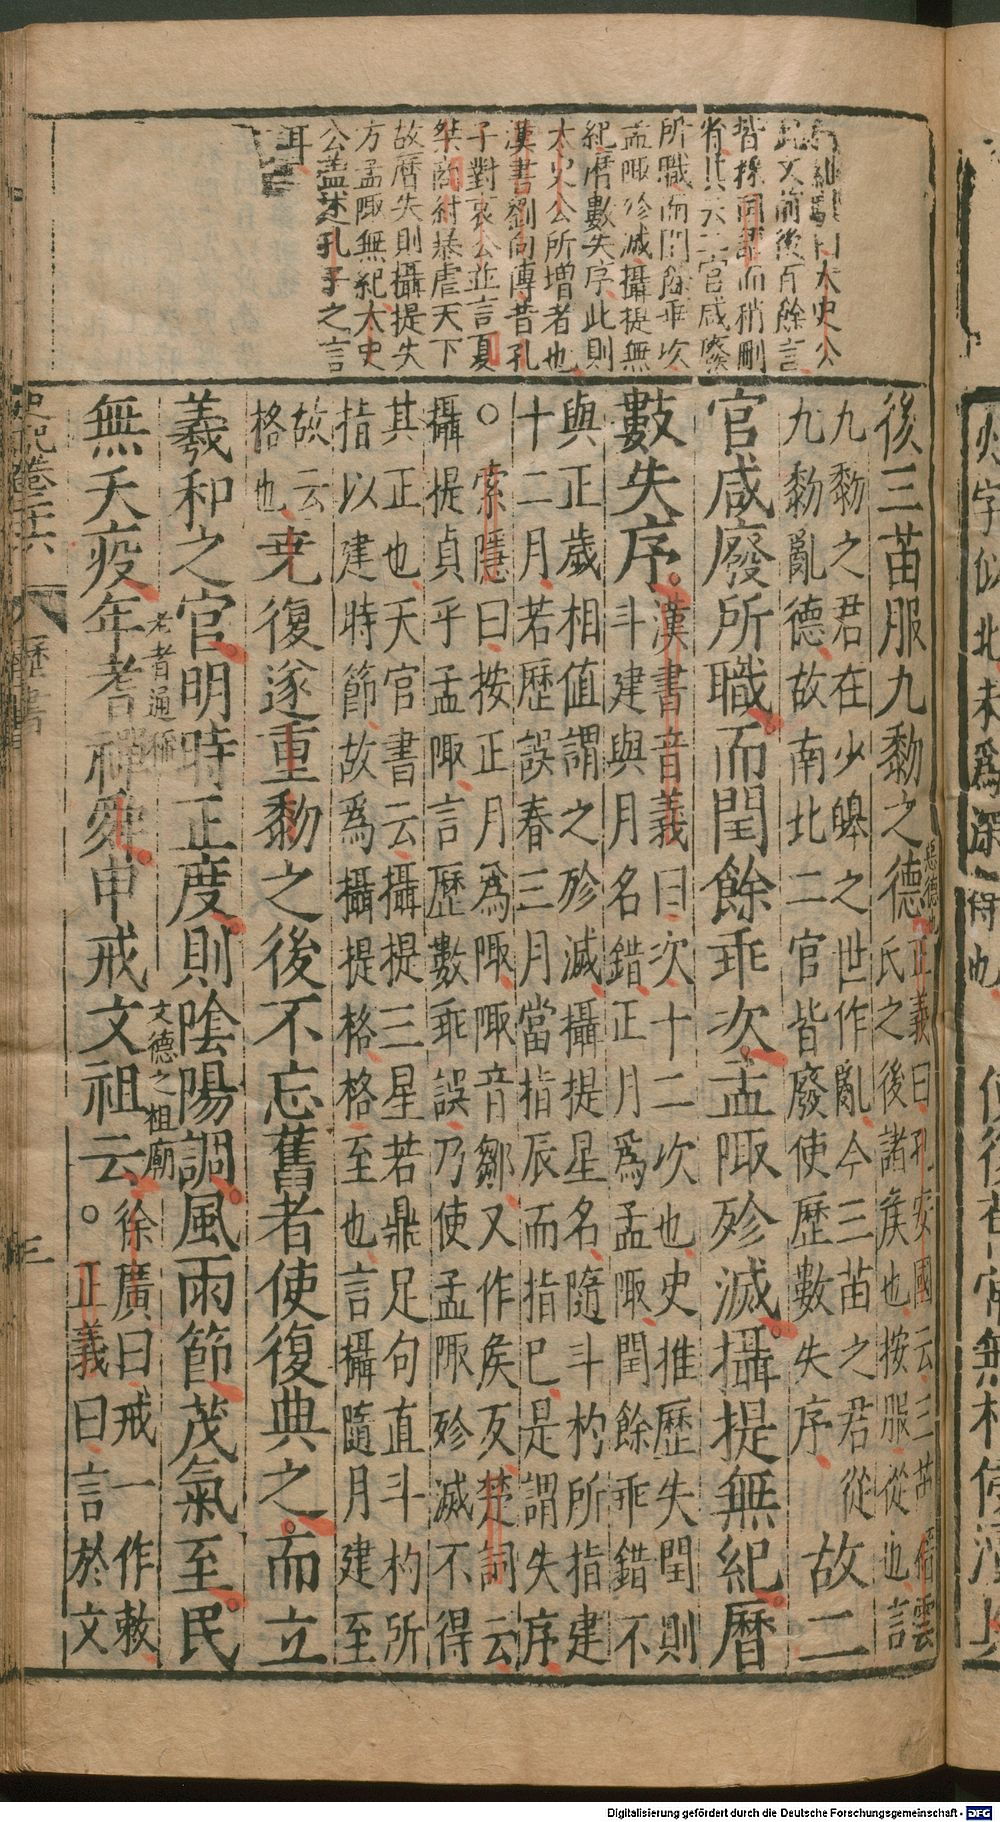 大史公
此文前後百餘言
皆採國語而稍刪
省其二官咸廢
所職而閏餘乖次
孟陬殄滅攝提無
紀曆數失序此則
太史公所增者也
漢書劉向傳昔孔
子對哀公並言夏
桀商紂暴虐天下
故曆失則攝提失
方孟陬無紀太史
公蓋述孔子之言
耳
後三苗服九黎之德
惡德也
正義曰孔安國云三苗
氏之後諸侯也按服從也言
九黎之君在少皞之世作亂今三苗之君從
九黎亂德故南北二官皆廢使歷數失序
故二
官咸廢所職而閏餘乖次孟陬殄滅攝提無紀曆
數失序。
漢書音義曰次十二次也史推歷失閏則
斗建與月名錯正月為孟陬閏餘乖錯不
與正歲相值謂之殄滅攝提星名隨斗杓所指建
十二月若歷誤春三月當指辰而指巳是謂失序
。索隱曰按正月為陬陬音鄒又作侯反楚詞云
攝提貞乎孟陬言歷數乖誤乃使孟陬殄滅不得
其正也天官書云攝提三星若鼎足句直斗杓所
指以建時節故為攝提格格至也言攝隨月建至
故云
格也
堯復遂重黎之後不忘舊者使復典之而立
羲和之官明時正度則陰陽調風雨節茂氣至民
無夭疫年耆禪舜申戒文祖云。
老者通稱
文德之祖廟
徐廣曰戒一作敕
正義曰言於文
史記卷二十六
歷書
三
Digitalisierung gefördert durch die Deutsche Forschungsgemeinschaft - DFG